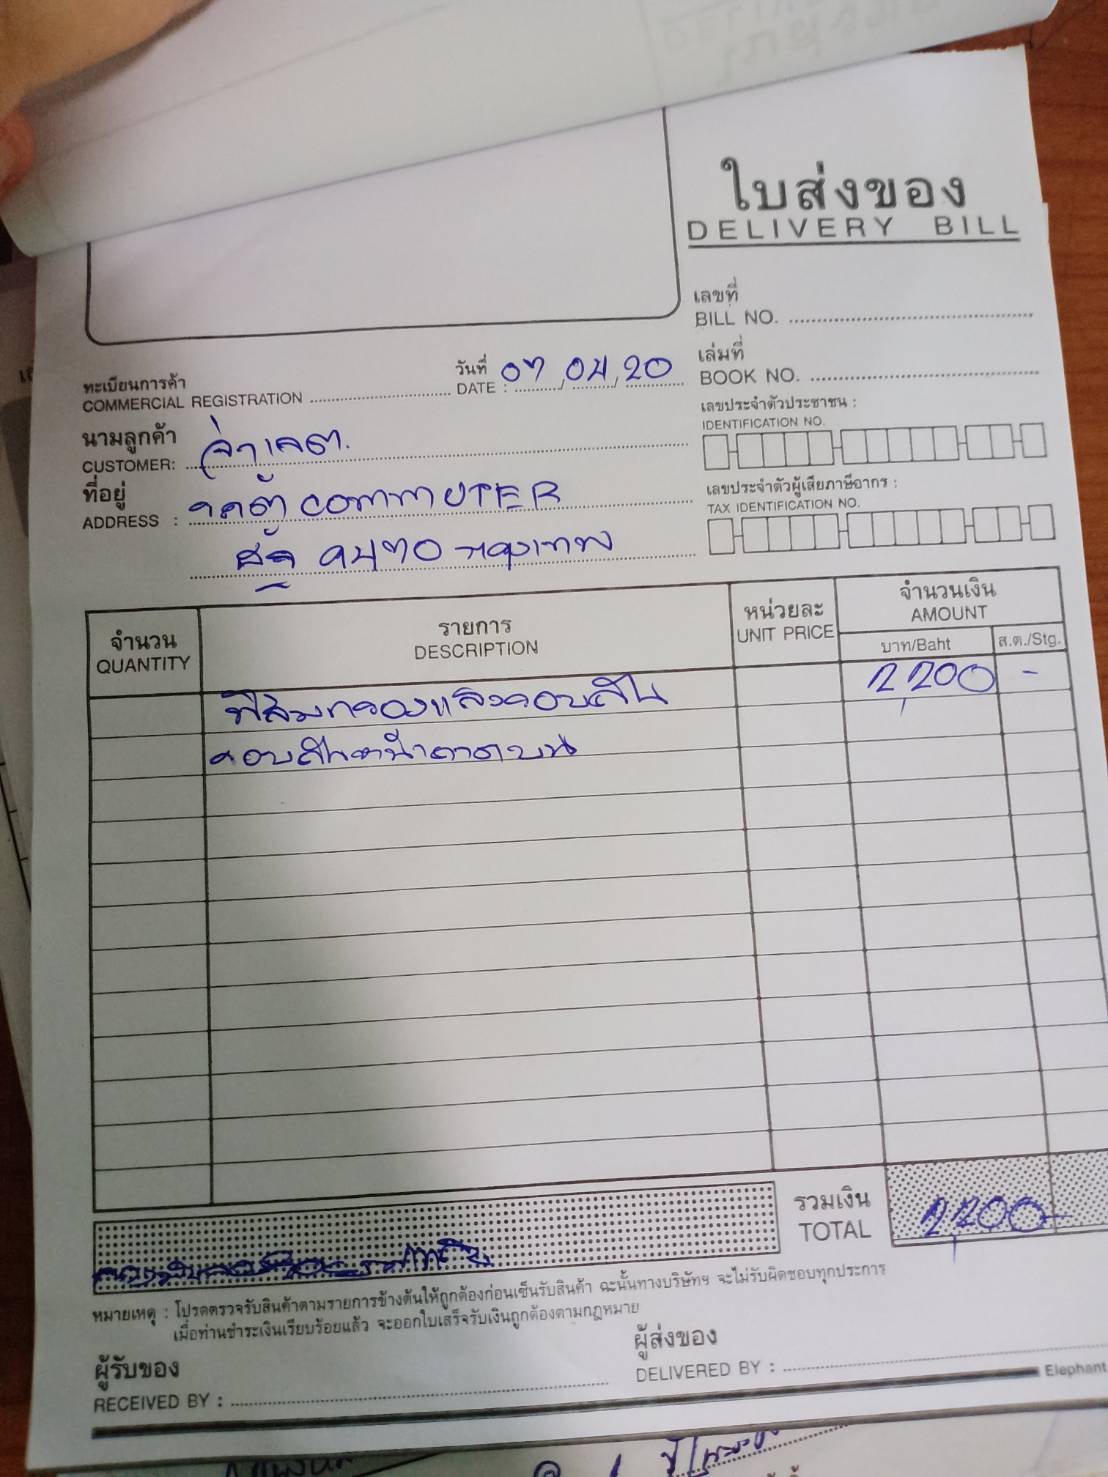 ใบส่งของ
DELIVERY BILL
เลขที่
BILL NO.
วันที่ 07, 04, 20
DATE :
เล่มที่
BOOK NO.
ทะเบียนการค้า
COMMERCIAL REGISTRATION
เลขประจำตัวประชาชน :
IDENTIFICATION NO.
นามลูกค้า
CUSTOMER:
ที่อยู่ COMMUTER
ADDRESS :
เลขประจำตัวผู้เสียภาษีอากร :
TAX IDENTIFICATION NO.
จำนวน
QUANTITY
รายการ
DESCRIPTION
หน่วยละ
UNIT PRICE
จำนวนเงิน
AMOUNT
บาท/Baht
ส.ต./Stg.
ฟิล์มกรองแสงรอบคัน 2,200 -
รวมเงิน
TOTAL
หมายเหตุ : โปรดตรวจรับสินค้าตามรายการข้างต้นให้ถูกต้องก่อนเซ็นรับสินค้า ฉะนั้นทางบริษัทฯ จะไม่รับผิดชอบทุกประการ
เมื่อท่านชำระเงินเรียบร้อยแล้ว จะออกใบเสร็จรับเงินถูกต้องตามกฎหมาย
ผู้รับของ
RECEIVED BY :
ผู้ส่งของ
DELIVERED BY :
Elephant